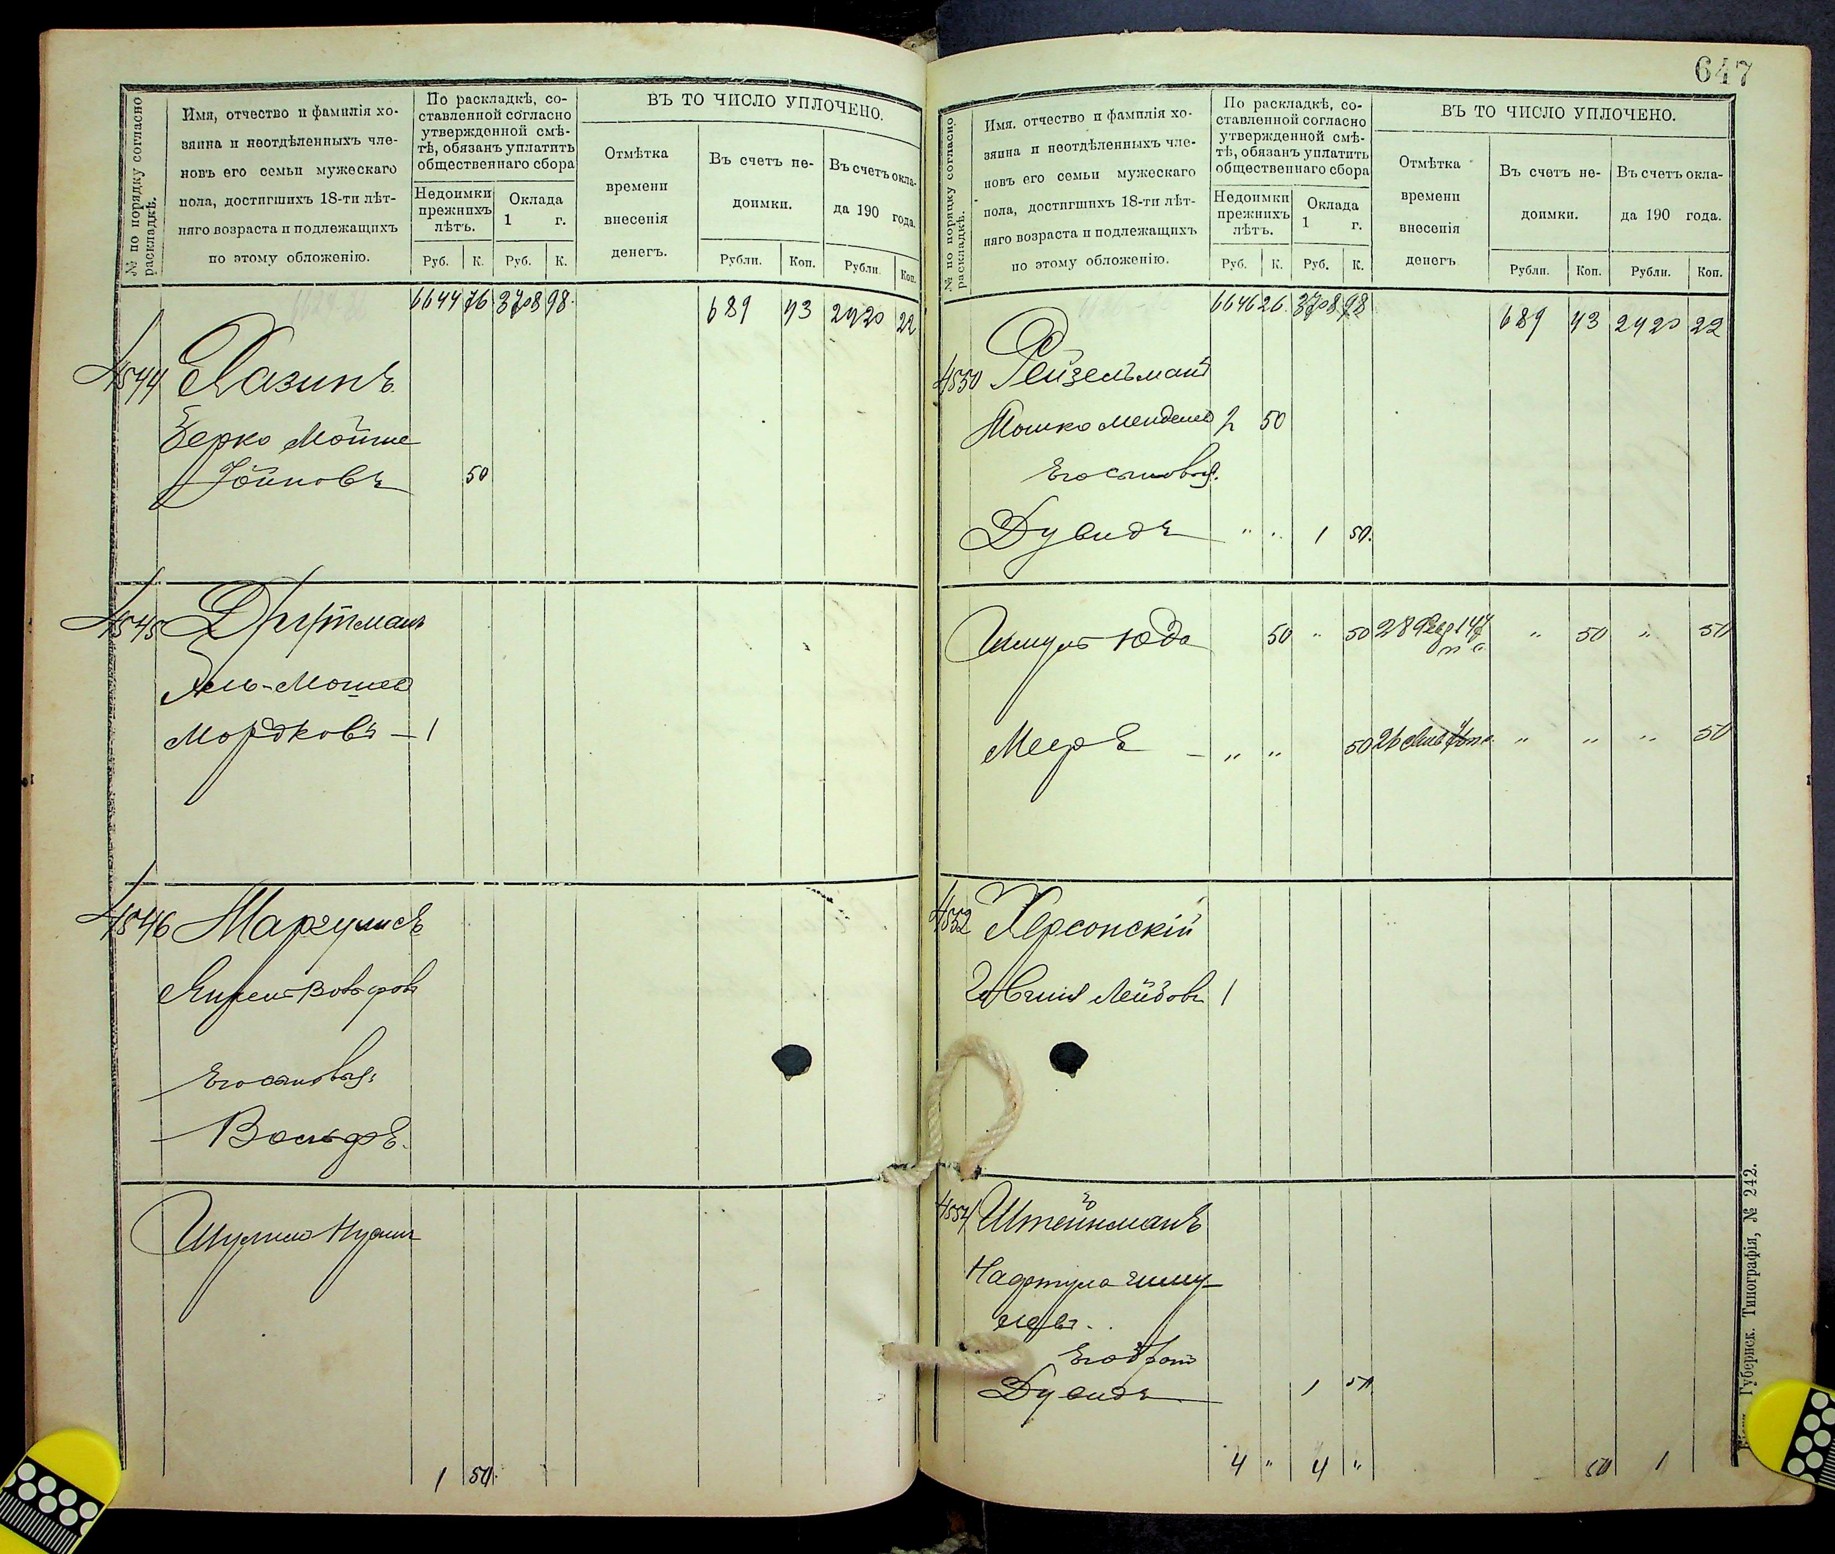 № по порядку согласно раскладкѣ.
Имя, отчество и фамилія хозяина и неотдѣленныхъ членовъ его семьи мужескаго пола, достигшихъ 18-ти лѣтняго возраста и подлежащихъ по этому обложенію.
По раскладкѣ, составленной согласно утвержденной смѣтѣ, обязанъ уплатить общественнаго сбора
Недоимки прежнихъ лѣтъ.
Оклада 1 г.
Руб. К. Руб. К.
ВЪ ТО ЧИСЛО УПЛОЧЕНО.
Отмѣтка времени внесенія денегъ.
Въ счетъ недоимки.
Въ счетъ оклада 190 года.
Рубли. Коп. Рубли. Коп.
6644 76 3708 98 689 43 2420 22
4544 Хазинъ
Берко Мойше
Іойновъ 50
4545
Мошев
Мордковъ — 1
4546 Маргулисъ
Янкель Вольфовъ
Его сыновья:
Вольфъ.
Шулим Нусин
1 50
647
№ по порядку согласно раскладкѣ.
Имя, отчество и фамилія хозяина и неотдѣленныхъ членовъ его семьи мужескаго пола, достигшихъ 18-ти лѣтняго возраста и подлежащихъ по этому обложенію.
По раскладкѣ, составленной согласно утвержденной смѣтѣ, обязанъ уплатить общественнаго сбора
Недоимки прежнихъ лѣтъ.
Оклада 1 г.
Руб. К. Руб. К.
ВЪ ТО ЧИСЛО УПЛОЧЕНО.
Отмѣтка времени внесенія денегъ
Въ счетъ недоимки.
Въ счетъ оклада 190 года.
Рубли. Коп. Рубли. Коп.
6646 26 3708 98 689 43 2420 22
4550 Рейзельманъ
Мошко Менделев 2 50
Его сыновья:
Дувидъ " " 1 50
Шмуль Юда 50 " 50 28 " 50 " 50
Мееръ — " " 50 26 " " " 50
4552 Херсонскій
Лейбовъ 1
4554 Штейнманъ
Нафтула Шму-
левъ.
Его братъ
Дувидъ 1 50
4 " 4 " 50 1
Губернск. Типографія, № 242.